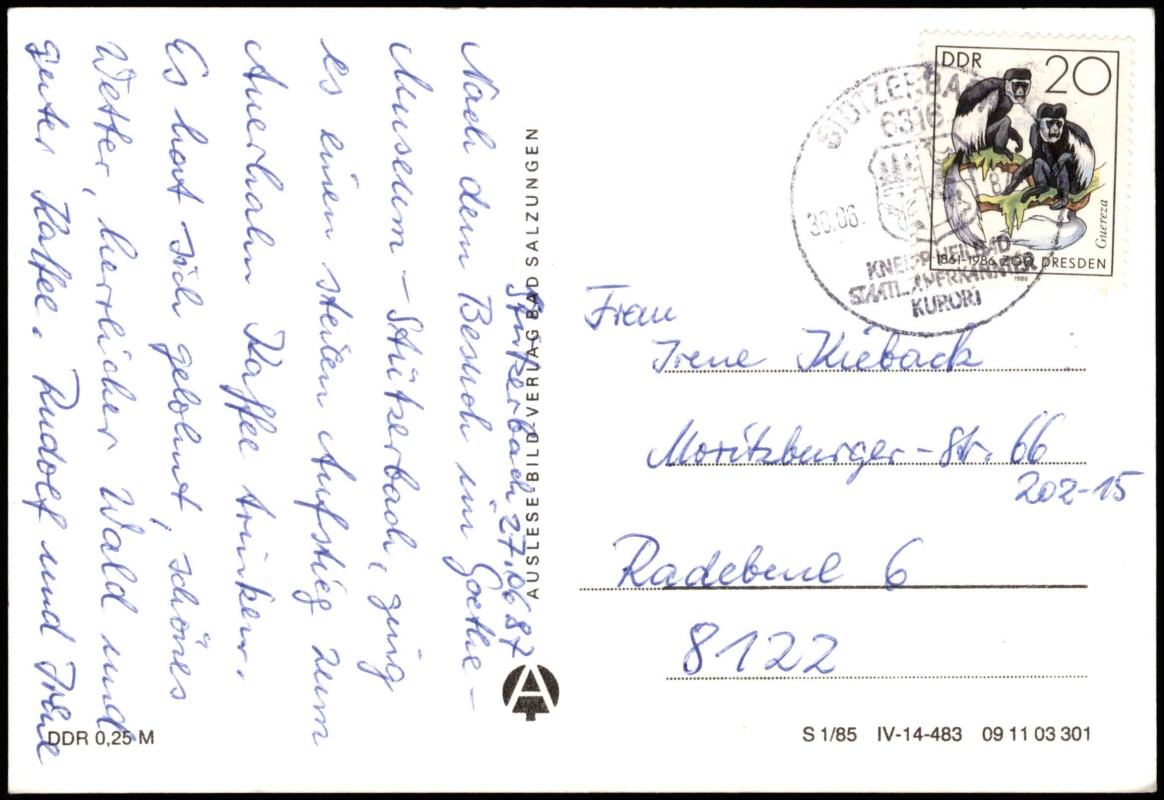 Stützerbach 27.06.87
Nach dem Besuch im Goethe-
Museum - Stützerbach, ging
es einen steilen Aufstieg zum
Auerhahn Kaffee trinken.
Es hat sich gelohnt, schönes
Wetter, herrlicher Wald und
guter Kaffee. Rudolf und Irene
AUSLESE BILD-VERLAG BAD SALZUNGEN
A
DDR 0,25 M
STÜTZERBACH
6316
30.06.
KNEIPP-HEILBAD
STAATL. ANERKANNTER
KURORT
DDR 20
Guereza
1861-1986 ZOO DRESDEN
1986
Frau
Irene Kieback
Moritzburger-Str. 66
202-15
Radebeul 6
8122
S 1/85 IV-14-483 09 11 03 301